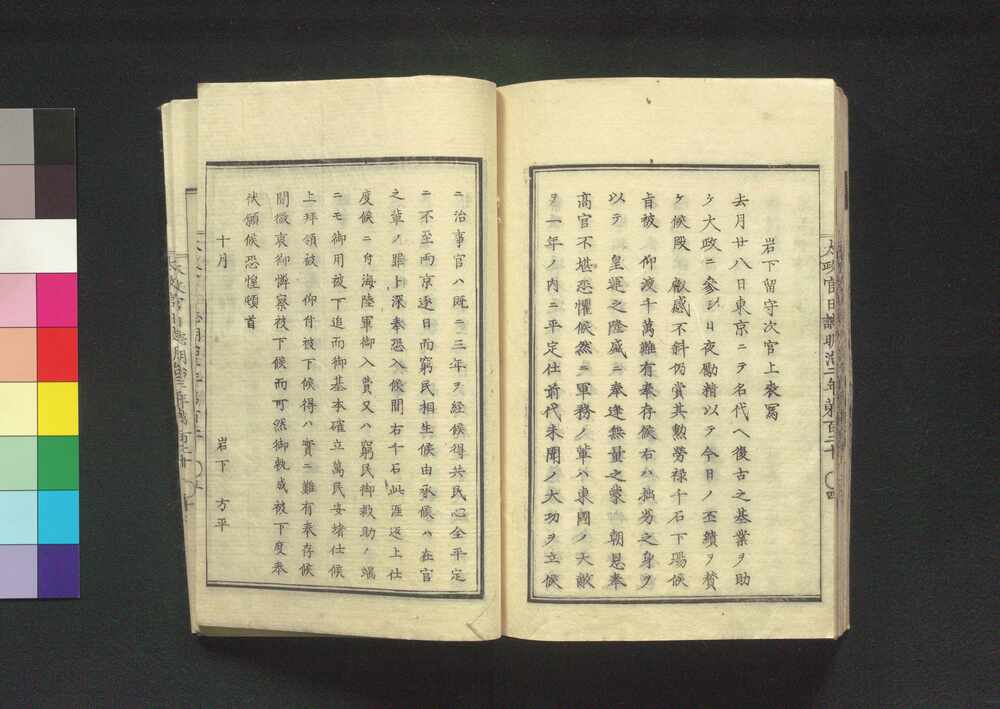 岩下留守次官上表冩
去月廿八日東京ニテ名代ヘ復古之基業ヲ助
ケ大政ニ參シ日夜勵精以テ今日ノ丕績ヲ賛
ケ候段 叡感不斜仍賞其勲勞禄千石下賜候
旨被 仰渡千萬難有奉存候右ハ拙劣之身ヲ
以テ 皇運之隆盛ニ奉逢無量之蒙 朝恩奉
高官不堪恐懼候然ニ軍務ノ輩ハ東國ノ大敵
ヲ一年ノ内ニ平定仕前代未聞ノ大功ヲ立候
太政官日誌明治二年第百二十 四
ニ治事官ハ既ニ三年ヲ經候得共民心全平定
ニ不至両京逐日而窮民相生候由承候ハ在官
之輩ノ罪上深奉恐入候間右千石此涯返上仕
度候ニ付海陸軍御入費又ハ窮民御救助ノ端
ニモ御用被下追而御基本確立萬民安堵仕候
上拜領被 仰付被下候得ハ實ニ難有奉存候
間微衷御憐察被下候而可然御執成被下度奉
伏願候恐惶頓首
十月 岩下 方平